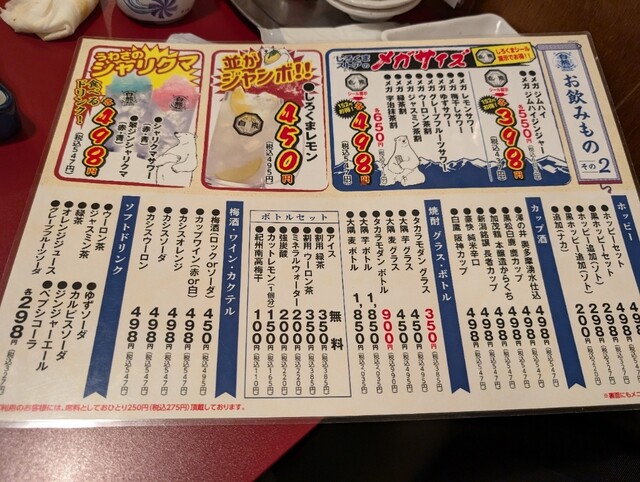 お飲みもの その2
しろくまストアの
メガサイズ
しろくまシール
メガジムハイ
メガジムハイジンジャー
各550円
各398円
メガレモンサワー
メガ梅干しサワー
メガゆずサワー
メガウーロン茶割
メガジャスミン茶割
メガ緑茶割
メガ宇治抹茶割
各650円
各498円
並がジャンボ!!
しろくまレモン
450円
(税込495円)
さわぎのジャリクマ
食べるドリンク!!
各498円
(税込547円)
シャリクマサワー
(赤・青)
ホッピーセット
黒ホッピーセット
ホッピー追加(ソト)
黒ホッピー追加(ソト)
追加(ナカ)
200円
カップ酒
澤の井 奥多摩湧水仕込
黒松白鹿 鹿カップ
加茂鶴 本醸造からくち
新潟銘醸 長者カップ
豪快 純米辛口
白鷹 阪神カップ
498円
焼酎 グラス・ボトル
タカラモダン グラス 350円
大隅 芋 グラス 450円
大隅 麦 グラス 450円
タカラモダン ボトル 900円
大隅 芋 ボトル 1,850円
大隅 麦 ボトル 1,850円
ボトルセット
アイス 無料
割用 緑茶 350円 (税込385円)
割用 ウーロン茶 350円 (税込385円)
ミネラルウォーター 200円 (税込220円)
強炭酸 200円 (税込220円)
カットレモン(1個分) 150円
紀州南高梅干 100円 (税込110円)
梅酒・ワイン・カクテル
梅酒(ロックorソーダ) 450円 (税込495円)
カップワイン(赤or白) 498円 (税込547円)
カシスオレンジ 498円 (税込547円)
カシスソーダ 498円 (税込547円)
カシスウーロン 498円 (税込547円)
ソフトドリンク
ウーロン茶
ジャスミン茶
緑茶
オレンジジュース
グレープフルーツソーダ
ゆずソーダ
カルピスソーダ
ジンジャーエール
ペプシコーラ
各298円
ご利用のお客様には、席料としておひとり250円(税込275円)頂戴しております。